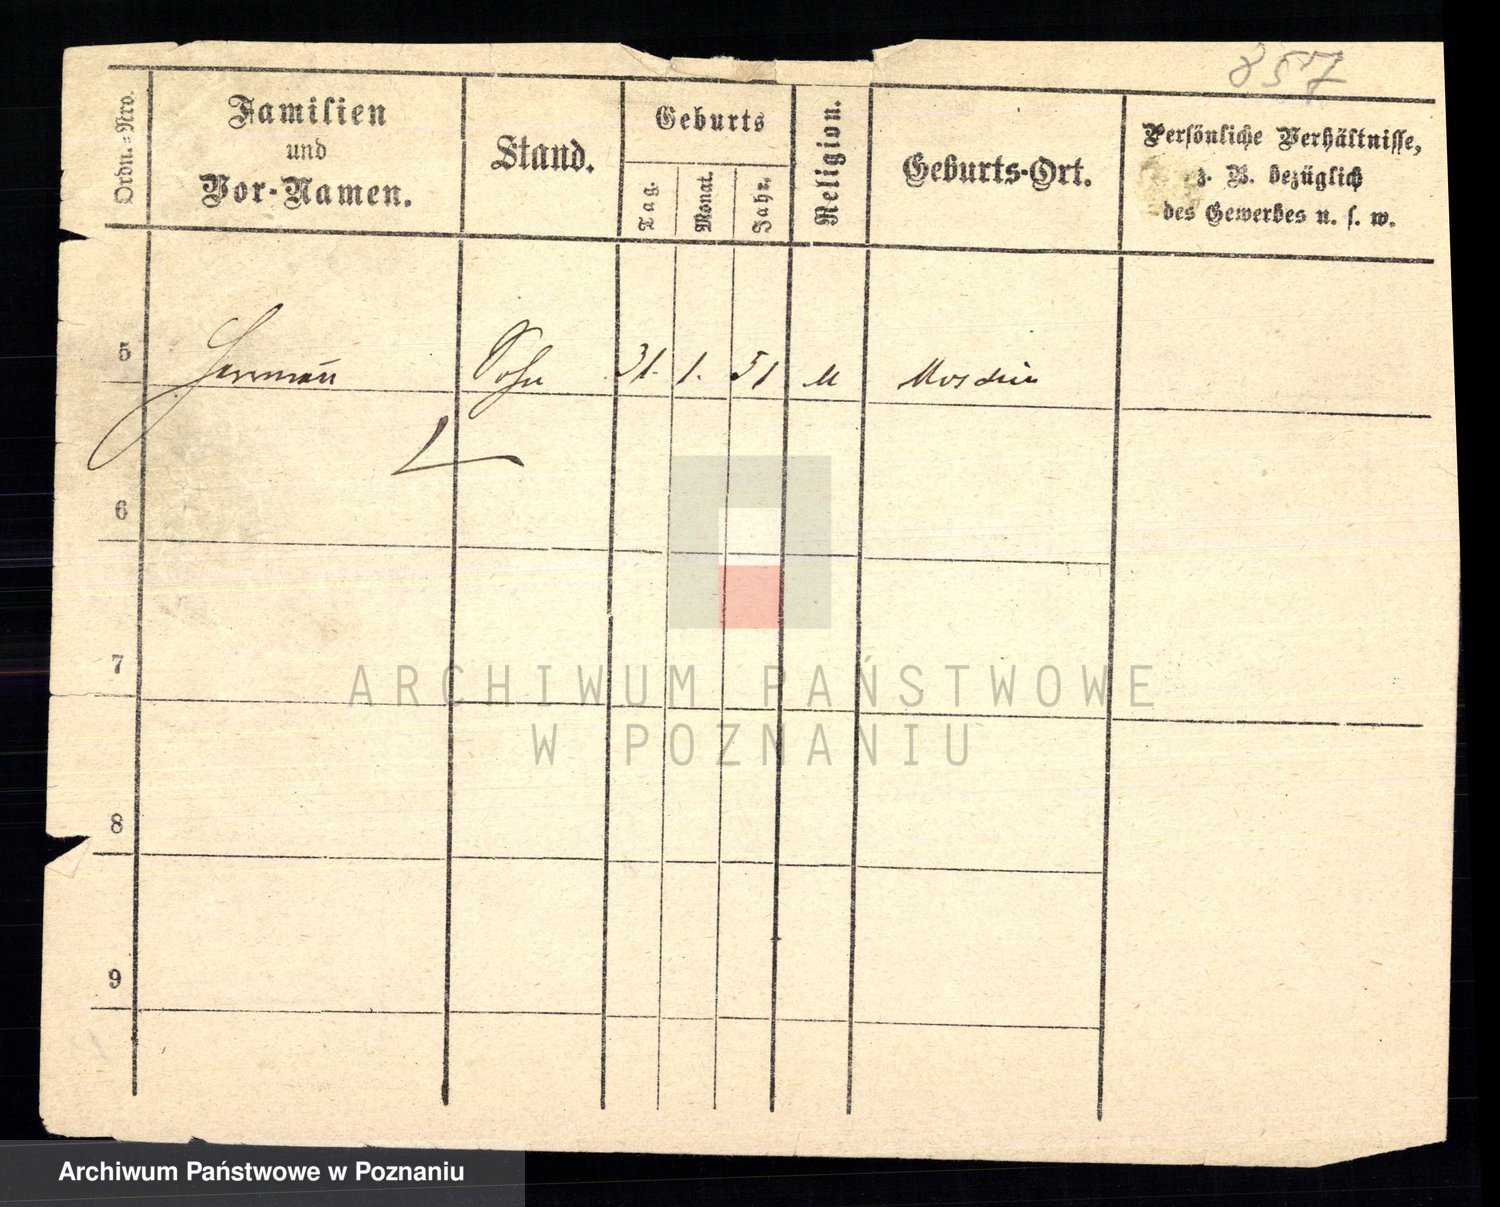 857
Ordn.=Nro.
Familien
und
Vor-Namen.
Stand.
Geburts
Tag.
Monat.
Jahr.
Religion.
Geburts-Ort.
Persönliche Verhältnisse,
z. B. bezüglich
des Gewerbes u. s. w.
5 Hermann Sohn 31. 1. 51 M Moschin
6
7
8
9
ARCHIWUM PAŃSTWOWE
W POZNANIU
Archiwum Państwowe w Poznaniu